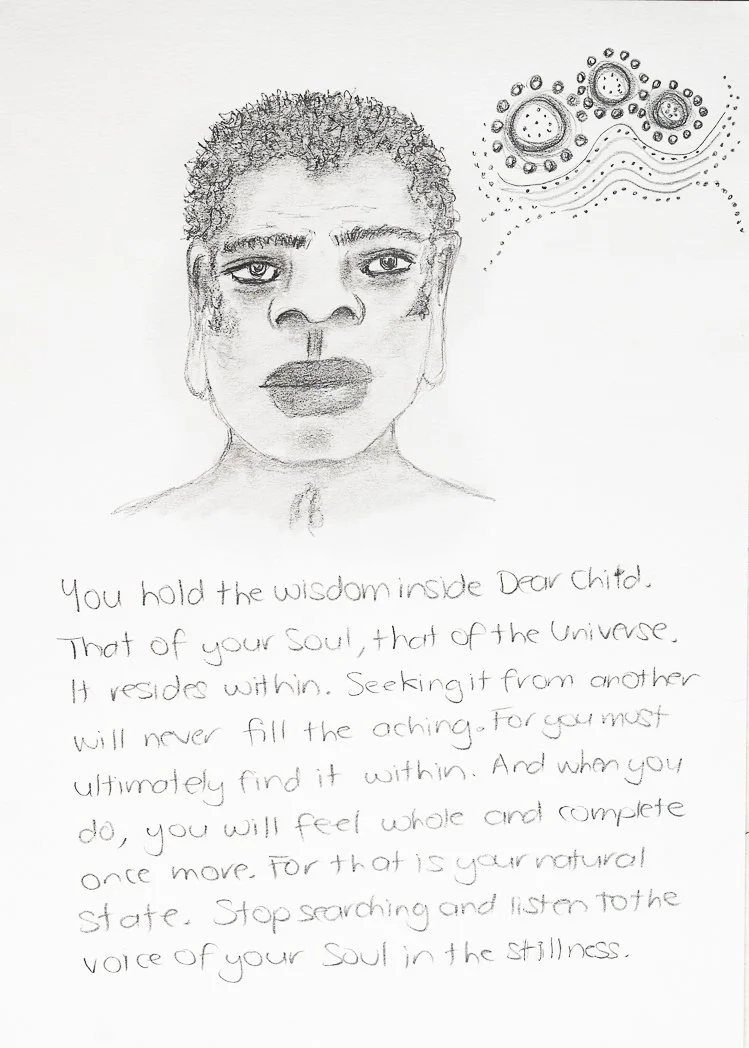 You hold the wisdom inside Dear Child.
That of your Soul, that of the Universe.
It resides within. Seeking it from another
will never fill the aching. For you must
ultimately find it within. And when you
do, you will feel whole and complete
once more. For that is your natural
state. Stop searching and listen to the
voice of your Soul in the stillness.